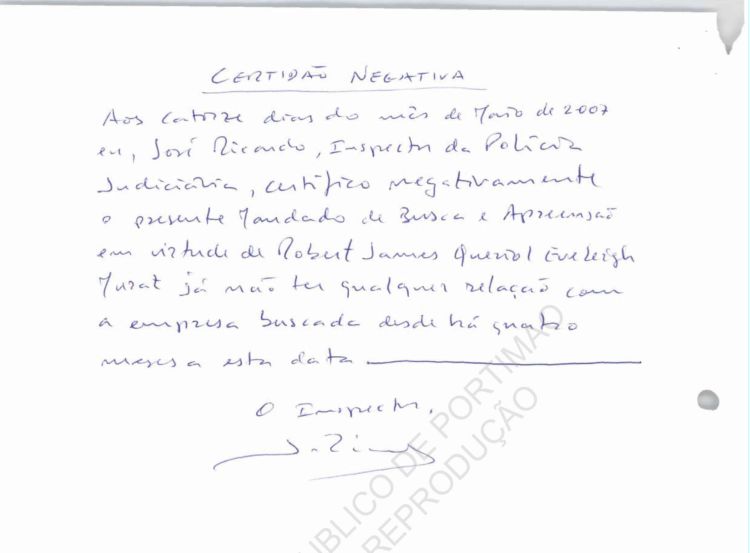 CERTIDÃO NEGATIVA
Aos catorze dias do mês de Maio de 2007
eu, José Ricardo, Inspector da Polícia
Judiciária, certifico negativamente
o presente Mandado de Busca e Apreensão
em virtude de Robert James Queriol Eveleigh
Murat já não ter qualquer relação com
a empresa buscada desde há quatro
meses a esta data
O Inspector,
PÚBLICO DE PORTIMÃO
REPRODUÇÃO